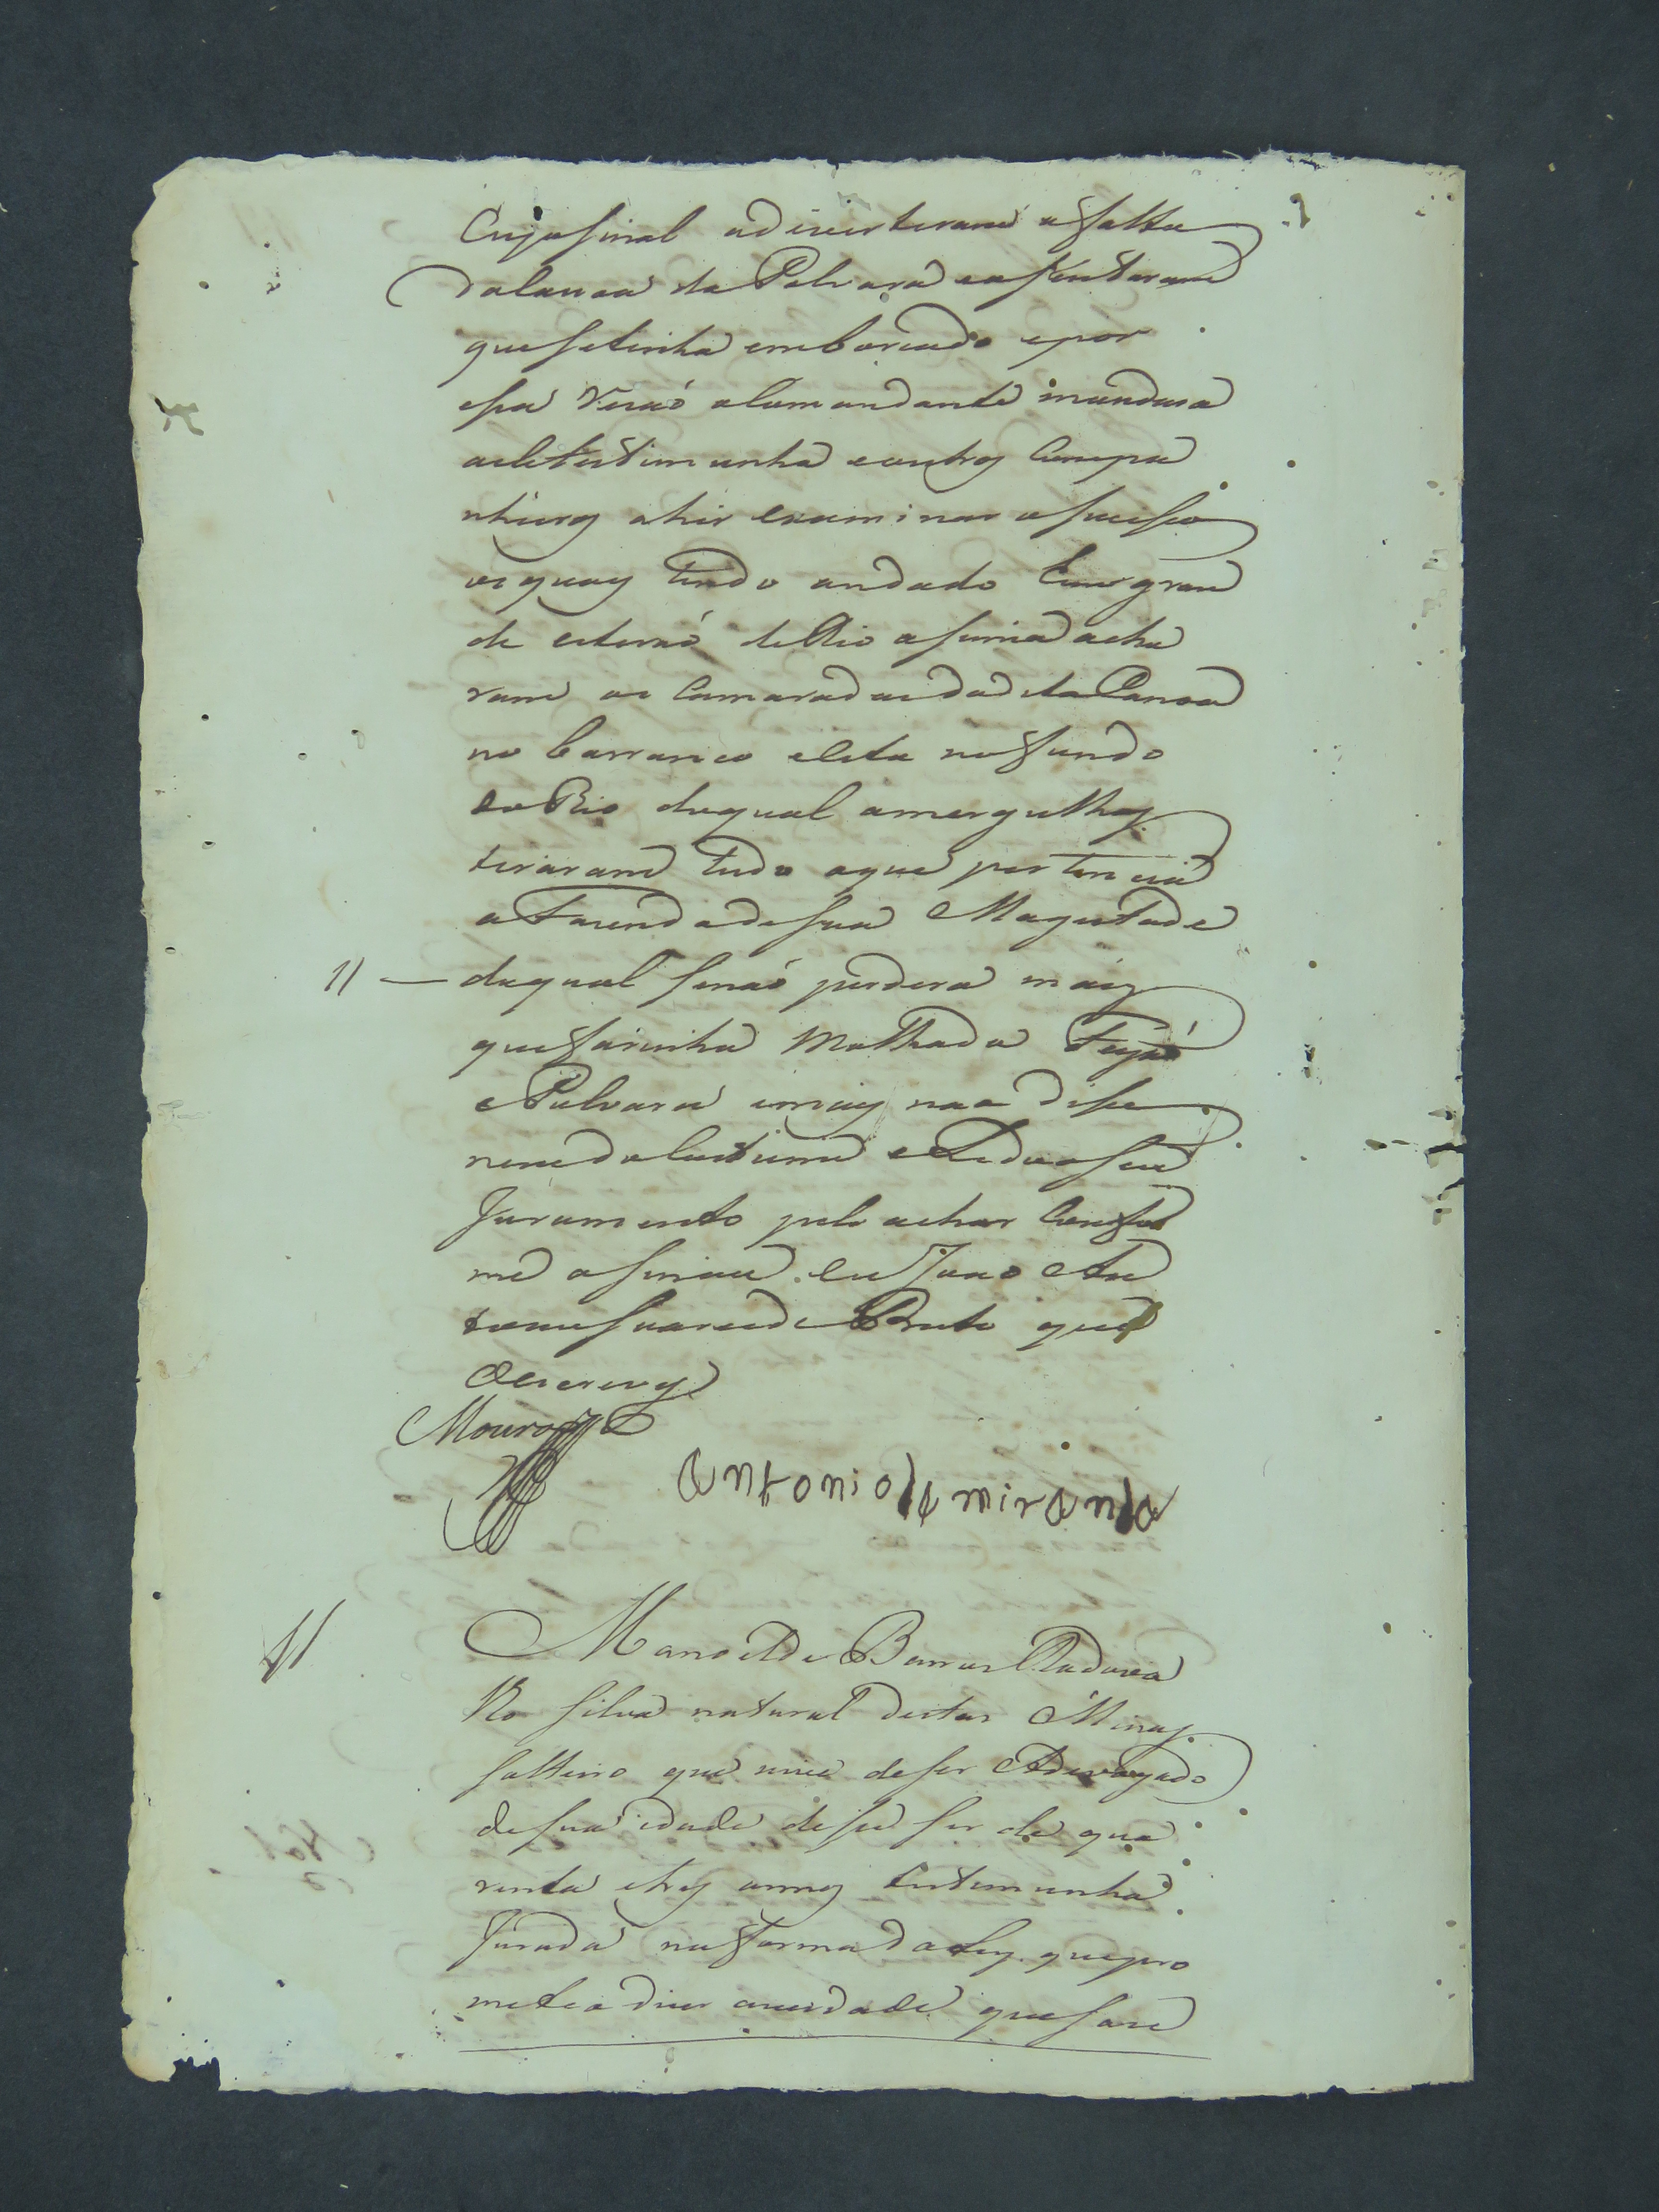 Cujo sinal advirteram a falta
da canoa da Polvora easentaram
que setinha emborcado epor
essa rezaõ oComandante mandara
aelletestimunha eoutros Compa
nheiros ahir examinar osucesso
os quaes tendo andado hum gran
de estiraõ deRio asima acha
ram os Camaradas da dita Canoa
no barranco eesta nofundo
do Rio doqual amergulhos
tiraram tudo oque pertencia
aFazenda desua Magestade
11 — daqual senaõ perdera mais
que farinha Molhada Feijaõ
ePolvora emais naõ disse
nem do Custume eLido oseu
Juramento pelo achar Confor
me asinou. Eu Joaõ An
tonio Soares de Brito que
Oescrevy
Mouro
Antonio de miranda
11
Manoel de Barros
silva natural destas Minas
solteiro que vive de ser Advogado
de sua idade disse ser de qua
renta etres annos testimunha
Jurada nafórma da Ley. quepro
meteo dizer averdade que sou